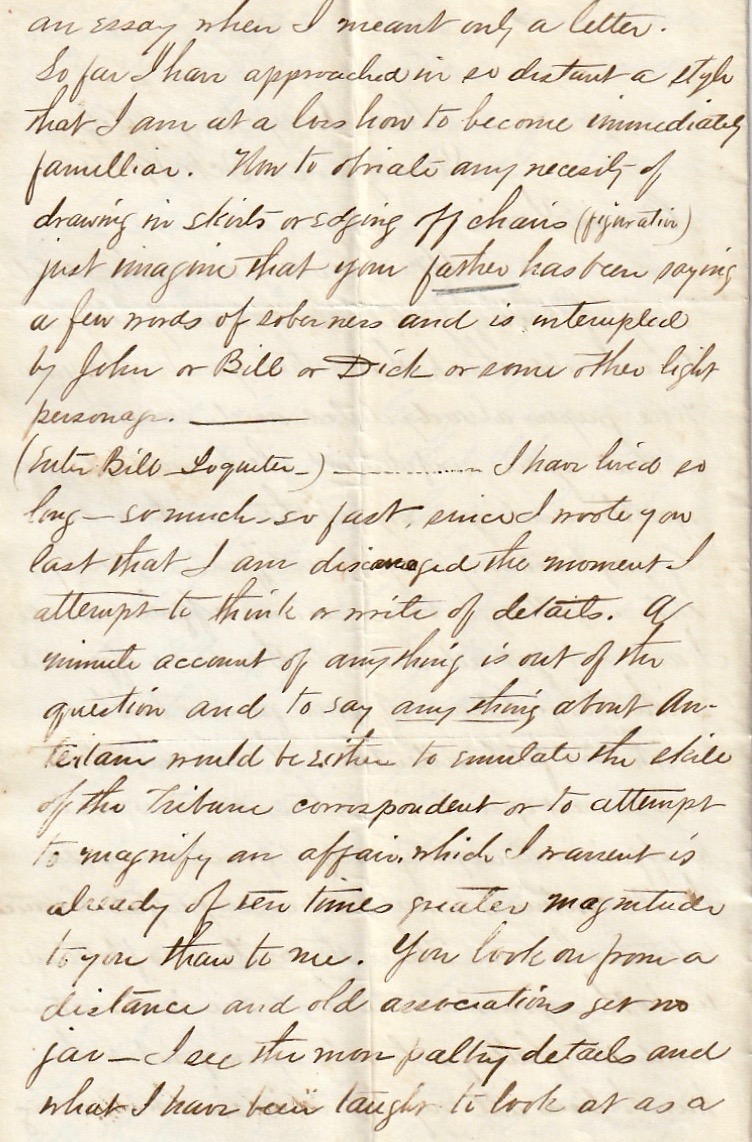 an essay when I meant only a letter.
So far I have approached in so distant a style
that I am at a loss how to become immediately
familliar. Now to obviate any necesity of
drawing in skirts or edging off chairs (figurative)
just imagine that your father has been saying
a few words of soberness and is interupted
by John or Bill or Dick or some other light
personage. ———
(Enter Bill – Loquiter –) ——— I have lived so
long – so much – so fast, since I wrote you
last that I am discouraged the moment I
attempt to think or write of details. A
minute account of anything is out of the
question and to say any thing about An-
tietam would be either to emulate the skill
of the Tribune correspondent or to attempt
to magnify an affair, which I warrent is
already of ten times greater magnitude
to you than to me. You look on from a
distance and old associations get no
jar – I see the more paltry details and
what I have been taught to look at as a